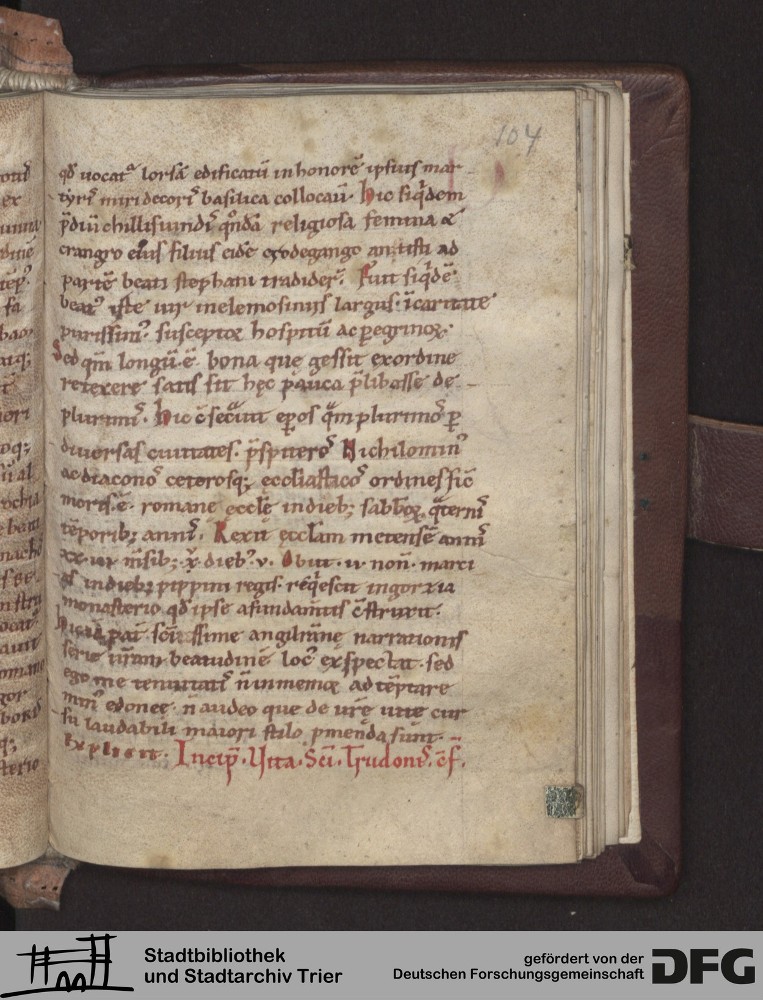 104
qđ uocat᷑ lorsā edificatū in honorē ipsius mar
tyris miri decoris basilica collocauit. Hic siqdem
p̄diū chillisuindis q̊ndā religiosa femina &
crangro eius filius eidē crodegango antisti ad
partē beati stephani tradider̄. Fuit siqdē
beatꝰ iste uir in elemosinis largus. ī caritate
purissimꝰ. susceptor hospitū ac peregrinoꝝ.
Sed qm̄ longū. ē. bona que gessit exordine
retexere satis sit hęc pauca p̄libasse de
plurimis. Hic c̄secᷓuit ep̄os q̄m plurimos ꝑ
diuersas ciuitates. p̄sƀiteros Nichilominꝰ
ac diaconos ceterosq; ecclīasticos ordines sic
moris. ē. romanę ecclę in dieb; sabbatoꝝ. q̄ternis
tēporib; annis. Rexit ęccłam metensē annis
xx.iiii msib; .v. dieb; v. Obiit .ii. non. marci
as in dieb; pippini regis. reqescit in gorzia
monasterio qđ ipse a fundamtis c̄struxit.
narrationis
serie ur̄am beatudinē locꝰ exspectat. sed
ego me tenuitatis adtēptare
minꝰ edonee. n̄ audeo que de ur̄ę uitę cur
su laudabili maiori stilo pmenda sunt.
Explicit. Incip̄. Uita. Sc̄i. Trudonis. c̄f.
Stadtbibliothek
und Stadtarchiv Trier
gefördert von der
Deutschen Forschungsgemeinschaft
DFG